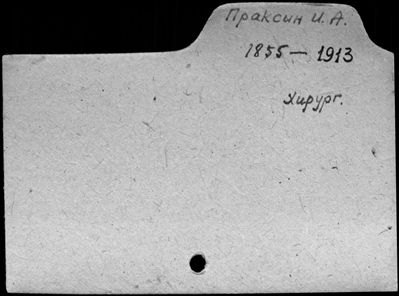 Праксин И. А.
1855 — 1913
Хирург.